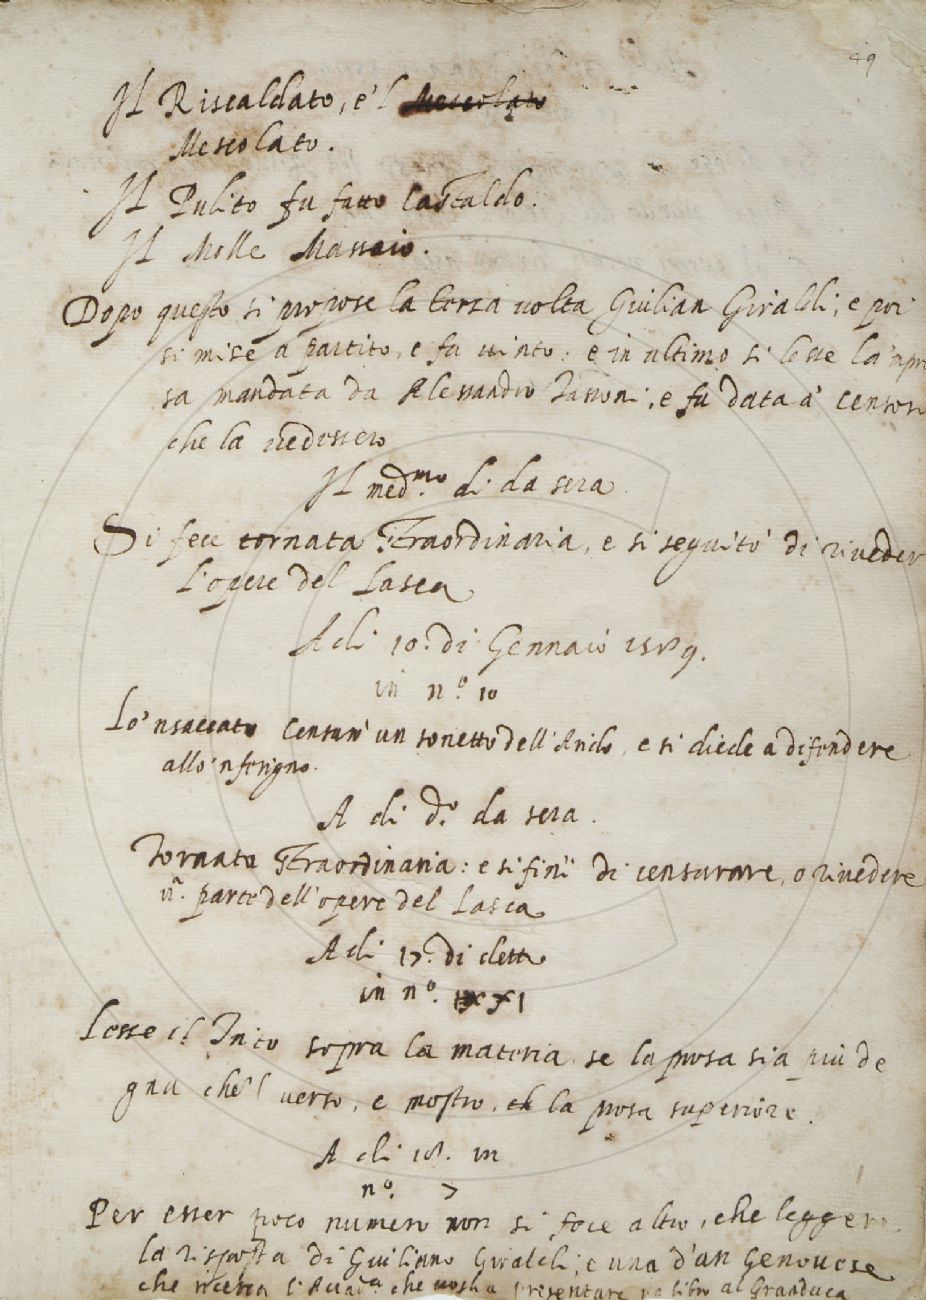 49
Il Riscaldato, e'l Mescolato
Mescolato.
Il Pulito fu fatto Castaldo.
Il Molle Massaio.
Dopo questo si propose la terza volta Giulian Giraldi; e poi
si mise a partito, e fu vinto: e in ultimo si lesse la
sa mandata da Alessandro, e fu data a' censori
che la vedessero
Il med.mo di da sera
Si fece tornata straordinaria, e si seguitò di riveder
l'opere del Lasca
A di 10. di Gennaio 1589.
in n.o 10
Lo'nsaccato censurò un sonetto dell'Arido, e si diede a difendere
allo'nferigno.
A di d.o da sera.
Tornata straordinaria: e si finì di censurare, o rivedere
parte dell'opere del Lasca
A di 17. di detto
in n.o
Lesse il Trito sopra la materia se la prosa sia più de
gna che'l verso, e mostrò, la prosa superiore.
A di 18. in
n.o 7
Per esser poco numero non si fece altro, che leggere
la risposta di Giuliano Giraldi; e una d'un Genovese
che ricerca l'Accad.a che voglia presentare un libro al Granduca